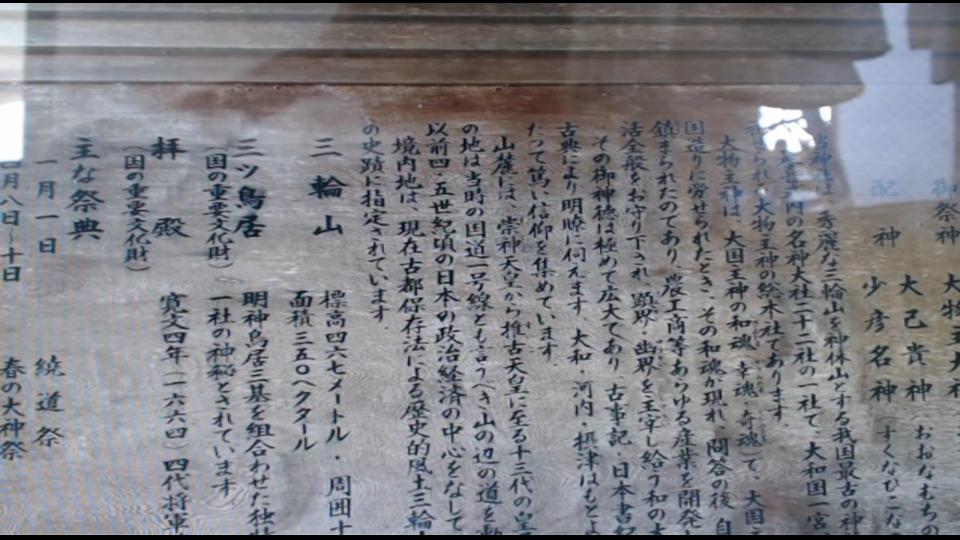 御祭神 大物主大神
大己貴神(おおなむちの
配神 少彦名神(すくなひこな
当神社は、秀麗な三輪山を神体山とする我国最古の神
内の名神大社二十二社の一社で、大和国一宮
せられ、大物主神の総本社であります。
大物主神は、大国主神の和魂(幸魂、奇魂)で、大国主
国造りに労せられたとき、その和魂が現れ、問答の後、自
鎮まられたのであり、農工商等あらゆる産業を開発し
活全般をお守り下され、顕界・幽界を主宰し給う和の大
その御神徳は極めて広大であり、古事記・日本書紀
古典により明瞭に伺えます。大和・河内・摂津はもとよ
たって篤い信仰を集めています。
山麓には、崇神天皇から推古天皇に至る十三代の皇
の地は当時の国道一号線とも言うべき山の辺の道を
以前四・五世紀頃の日本の政治経済の中心をなして
境内地は、現在古都保存法による歴史的風土三輪
の史蹟に指定されています。
三輪山 標高四六七メートル・周囲十
面積三五〇ヘクタール
三ッ鳥居 明神鳥居三基を組合わせた独
(国の重要文化財) 一社の神秘とされています
拝殿 寛文四年(一六六四)四代将軍
(国の重要文化財)
主な祭典
一月一日 繞道祭
四月八日~十日 春の大神祭